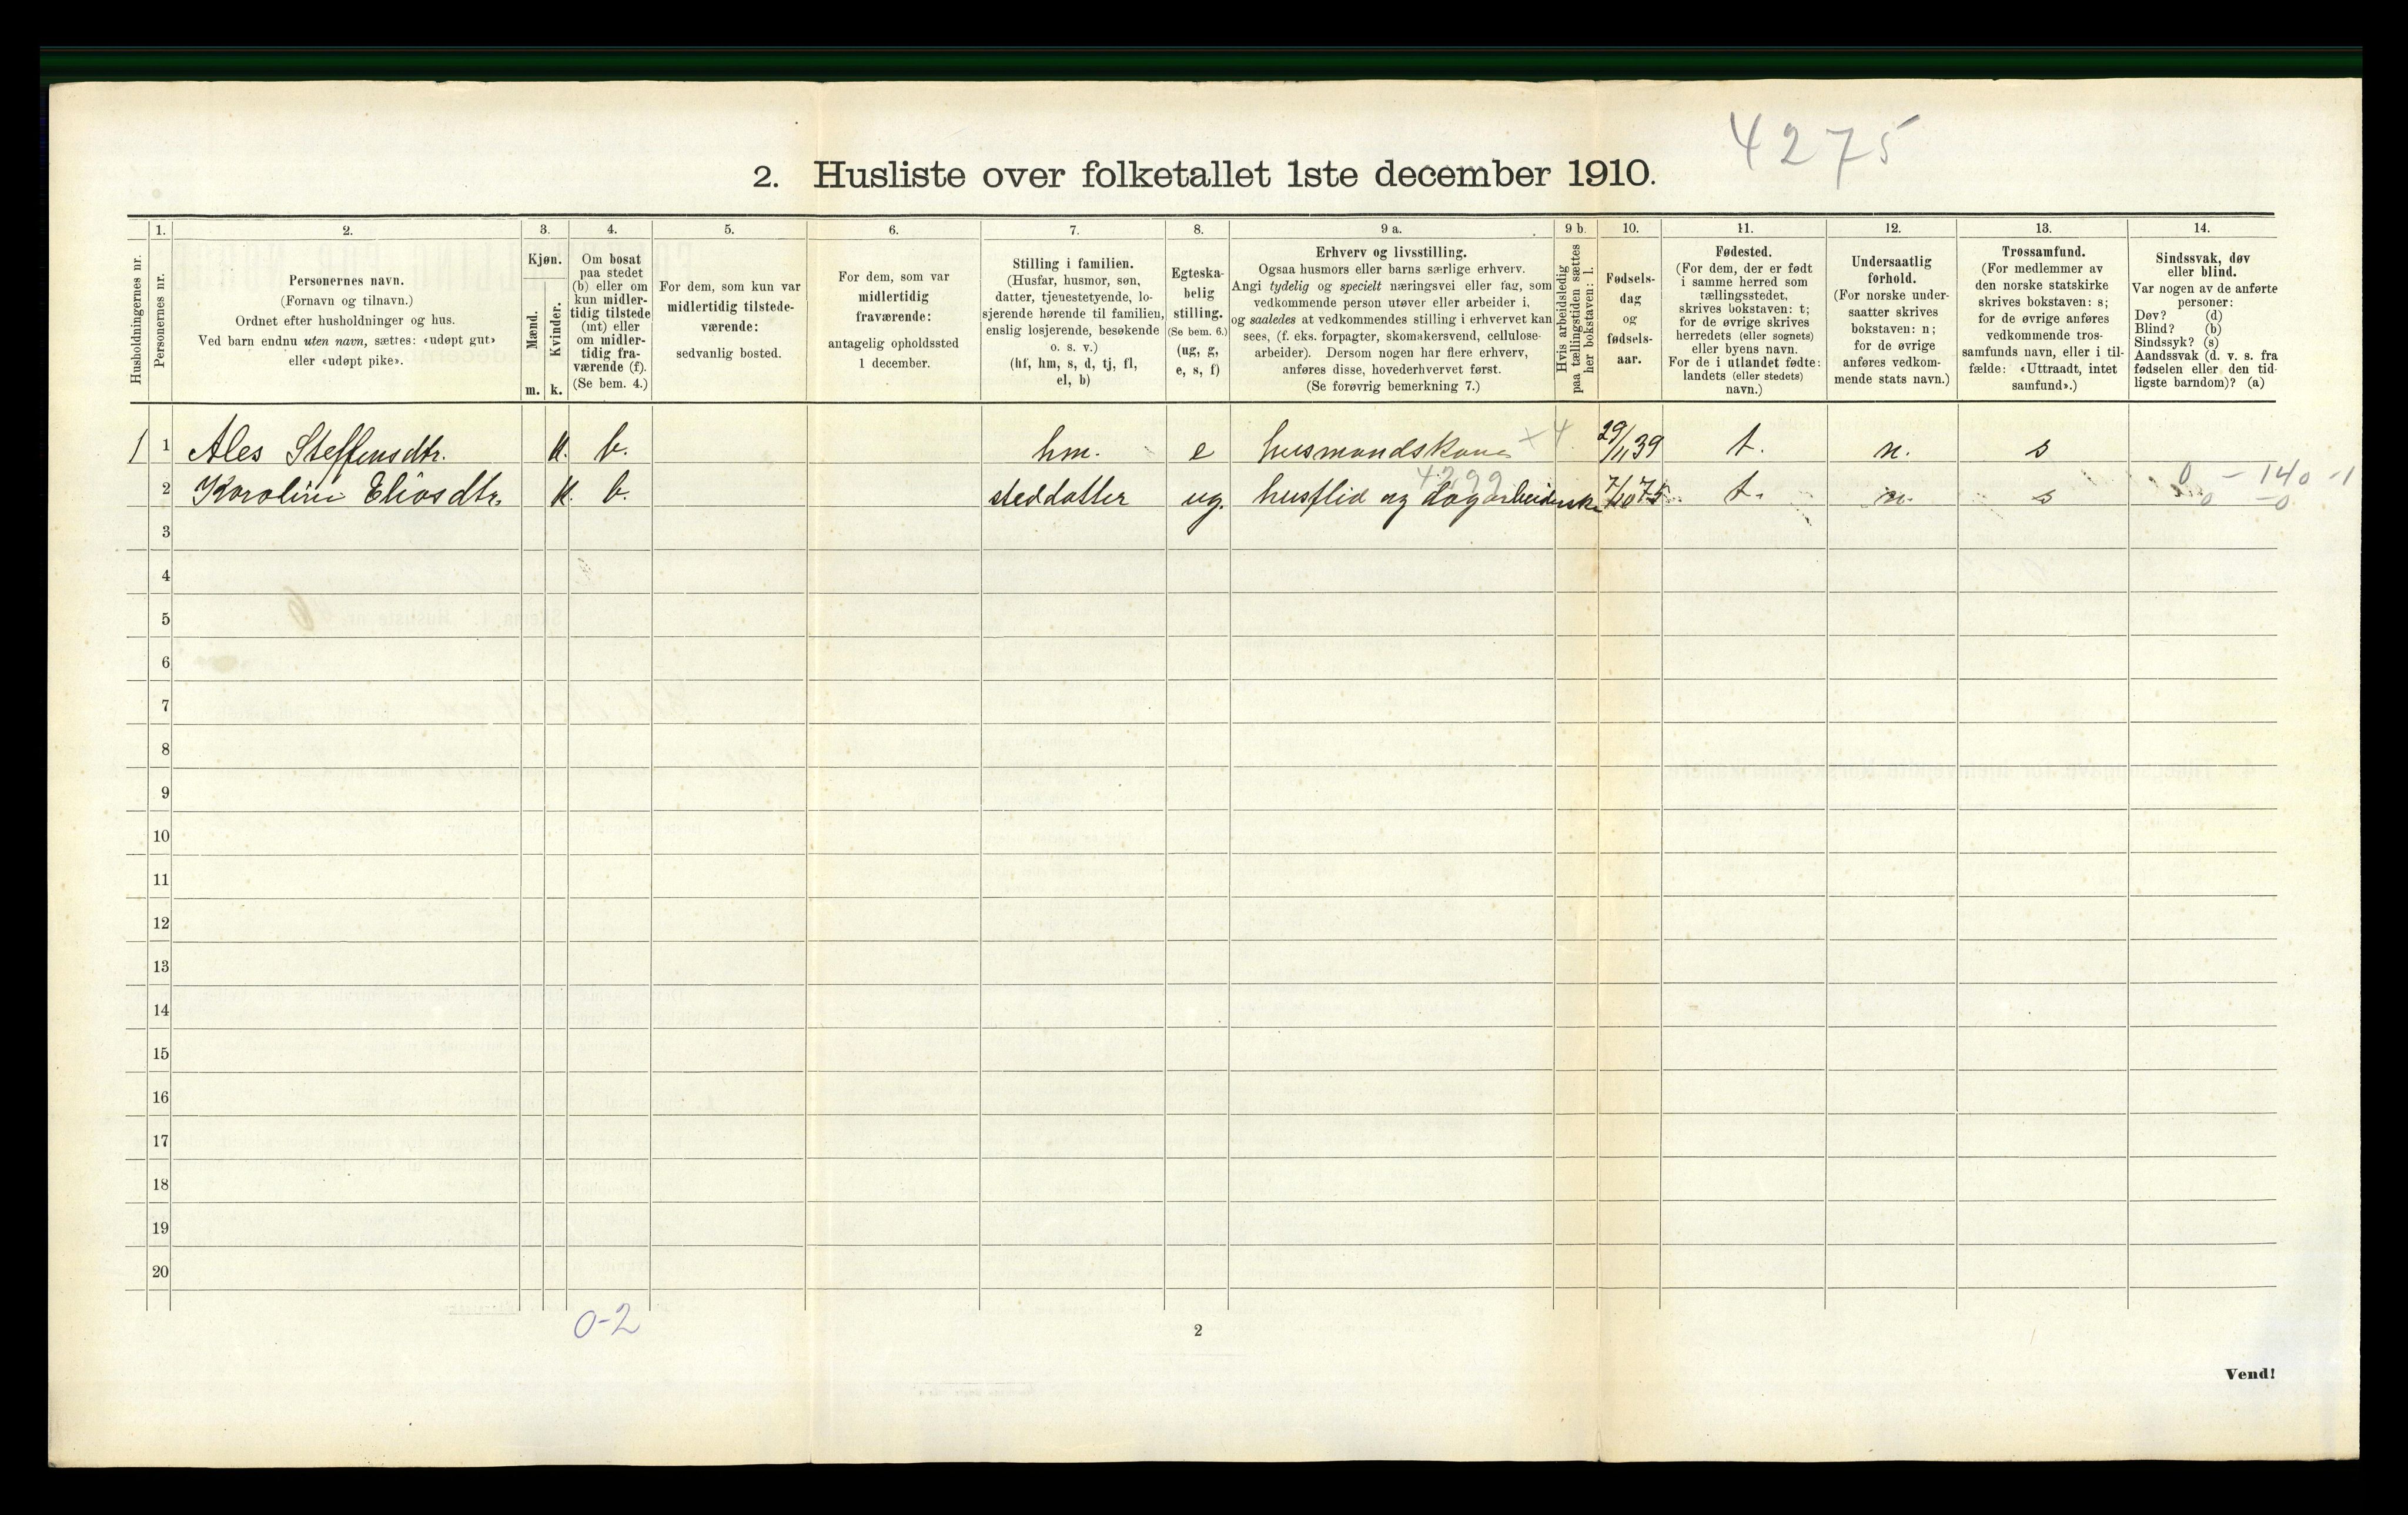 4275
2. Husliste over folketallet 1ste december 1910.
Husholdningernes nr.
1.
Personernes nr.
2.
Personernes navn.
(Fornavn og tilnavn.)
Ordnet efter husholdninger og hus.
Ved barn endnu uten navn, sættes: «udøpt gut»
eller «udøpt pike».
3.
Kjøn.
Mænd.
Kvinder.
m. k.
4.
Om bosat
paa stedet
(b) eller om
kun midler-
tidig tilstede
(mt) eller
om midler-
tidig fra-
værende (f).
(Se bem. 4.)
5.
For dem, som kun var
midlertidig tilstede-
værende:
sedvanlig bosted.
6.
For dem, som var
midlertidig
fraværende:
antagelig opholdssted
1 december.
7.
Stilling i familien.
(Husfar, husmor, søn,
datter, tjenestetyende, lo-
sjerende hørende til familien,
enslig losjerende, besøkende
o. s. v.)
(hf, hm, s, d, tj, fl,
el, b)
8.
Egteska-
belig
stilling.
(Se bem. 6.)
(ug, g,
e, s, f)
9 a.
Erhverv og livsstilling.
Ogsaa husmors eller barns særlige erhverv.
Angi tydelig og specielt næringsvei eller fag, som
vedkommende person utøver eller arbeider i,
og saaledes at vedkommendes stilling i erhvervet kan
sees, (f. eks. forpagter, skomakersvend, cellulose-
arbeider). Dersom nogen har flere erhverv,
anføres disse, hovederhvervet først.
(Se forøvrig bemerkning 7.)
9 b.
Hvis arbeidsledig
paa tællingstiden sættes
her bokstaven: l.
10.
Fødsels-
dag
og
fødsels-
aar.
11.
Fødested.
(For dem, der er født
i samme herred som
tællingsstedet,
skrives bokstaven: t;
for de øvrige skrives
herredets (eller sognets)
eller byens navn.
For de i utlandet fødte:
landets (eller stedets)
navn.)
12.
Undersaatlig
forhold.
(For norske under-
saatter skrives
bokstaven: n;
for de øvrige
anføres vedkom-
mende stats navn.)
13.
Trossamfund.
(For medlemmer av
den norske statskirke
skrives bokstaven: s;
for de øvrige anføres
vedkommende tros-
samfunds navn, eller i til-
fælde: «Uttraadt, intet
samfund».)
14.
Sindssvak, døv
eller blind.
Var nogen av de anførte
personer:
Døv? (d)
Blind? (b)
Sindssyk? (s)
Aandssvak (d. v. s. fra
fødselen eller den tid-
ligste barndom)? (a)
1 1 Ales Steffensdtr. k. b. hm. e husmandskone +4 29/11 39 t. n. s
2 Karolini Eliasdtr. k. b. steddatter ug. husflid og dagarbeiderske 4299 7/10 75 t. n. s 0 - 140 -1
0 -0
3
4
5
6
7
8
9
10
11
12
13
14
15
16
17
18
19
20
0-2
2
Vend!